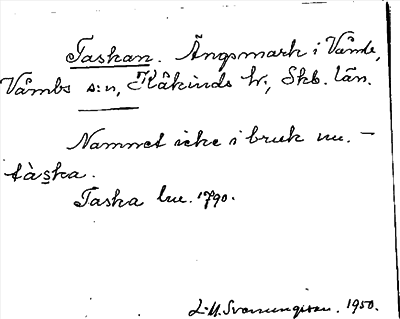 Taskan. Ängsmark i Våmb,
Våmbs s:n, Kåkinds hr, Skb. län.
Namnet icke i bruk nu. –
tàska.
Taska lue. 1790.
L-M. Svenungsson. 1950.